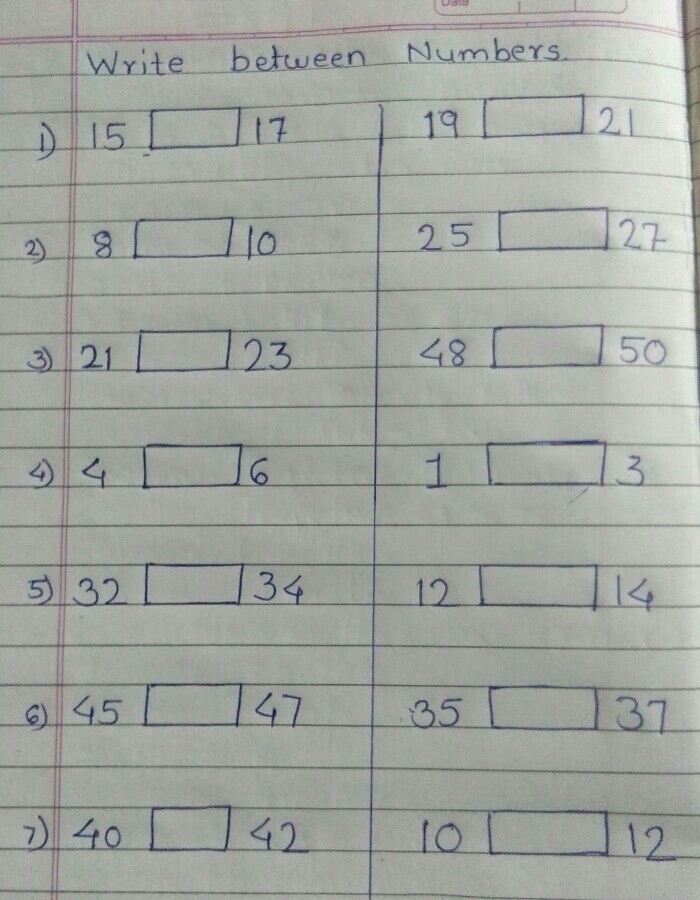 Date
Write between Numbers.
1) 15 17 19 21
2) 8 10 25 27
3) 21 23 48 50
4) 4 6 1 3
5) 32 34 12 14
6) 45 47 35 37
7) 40 42 10 12